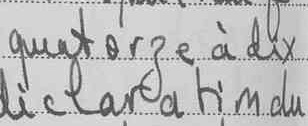 quatorze à dix
déclaration du